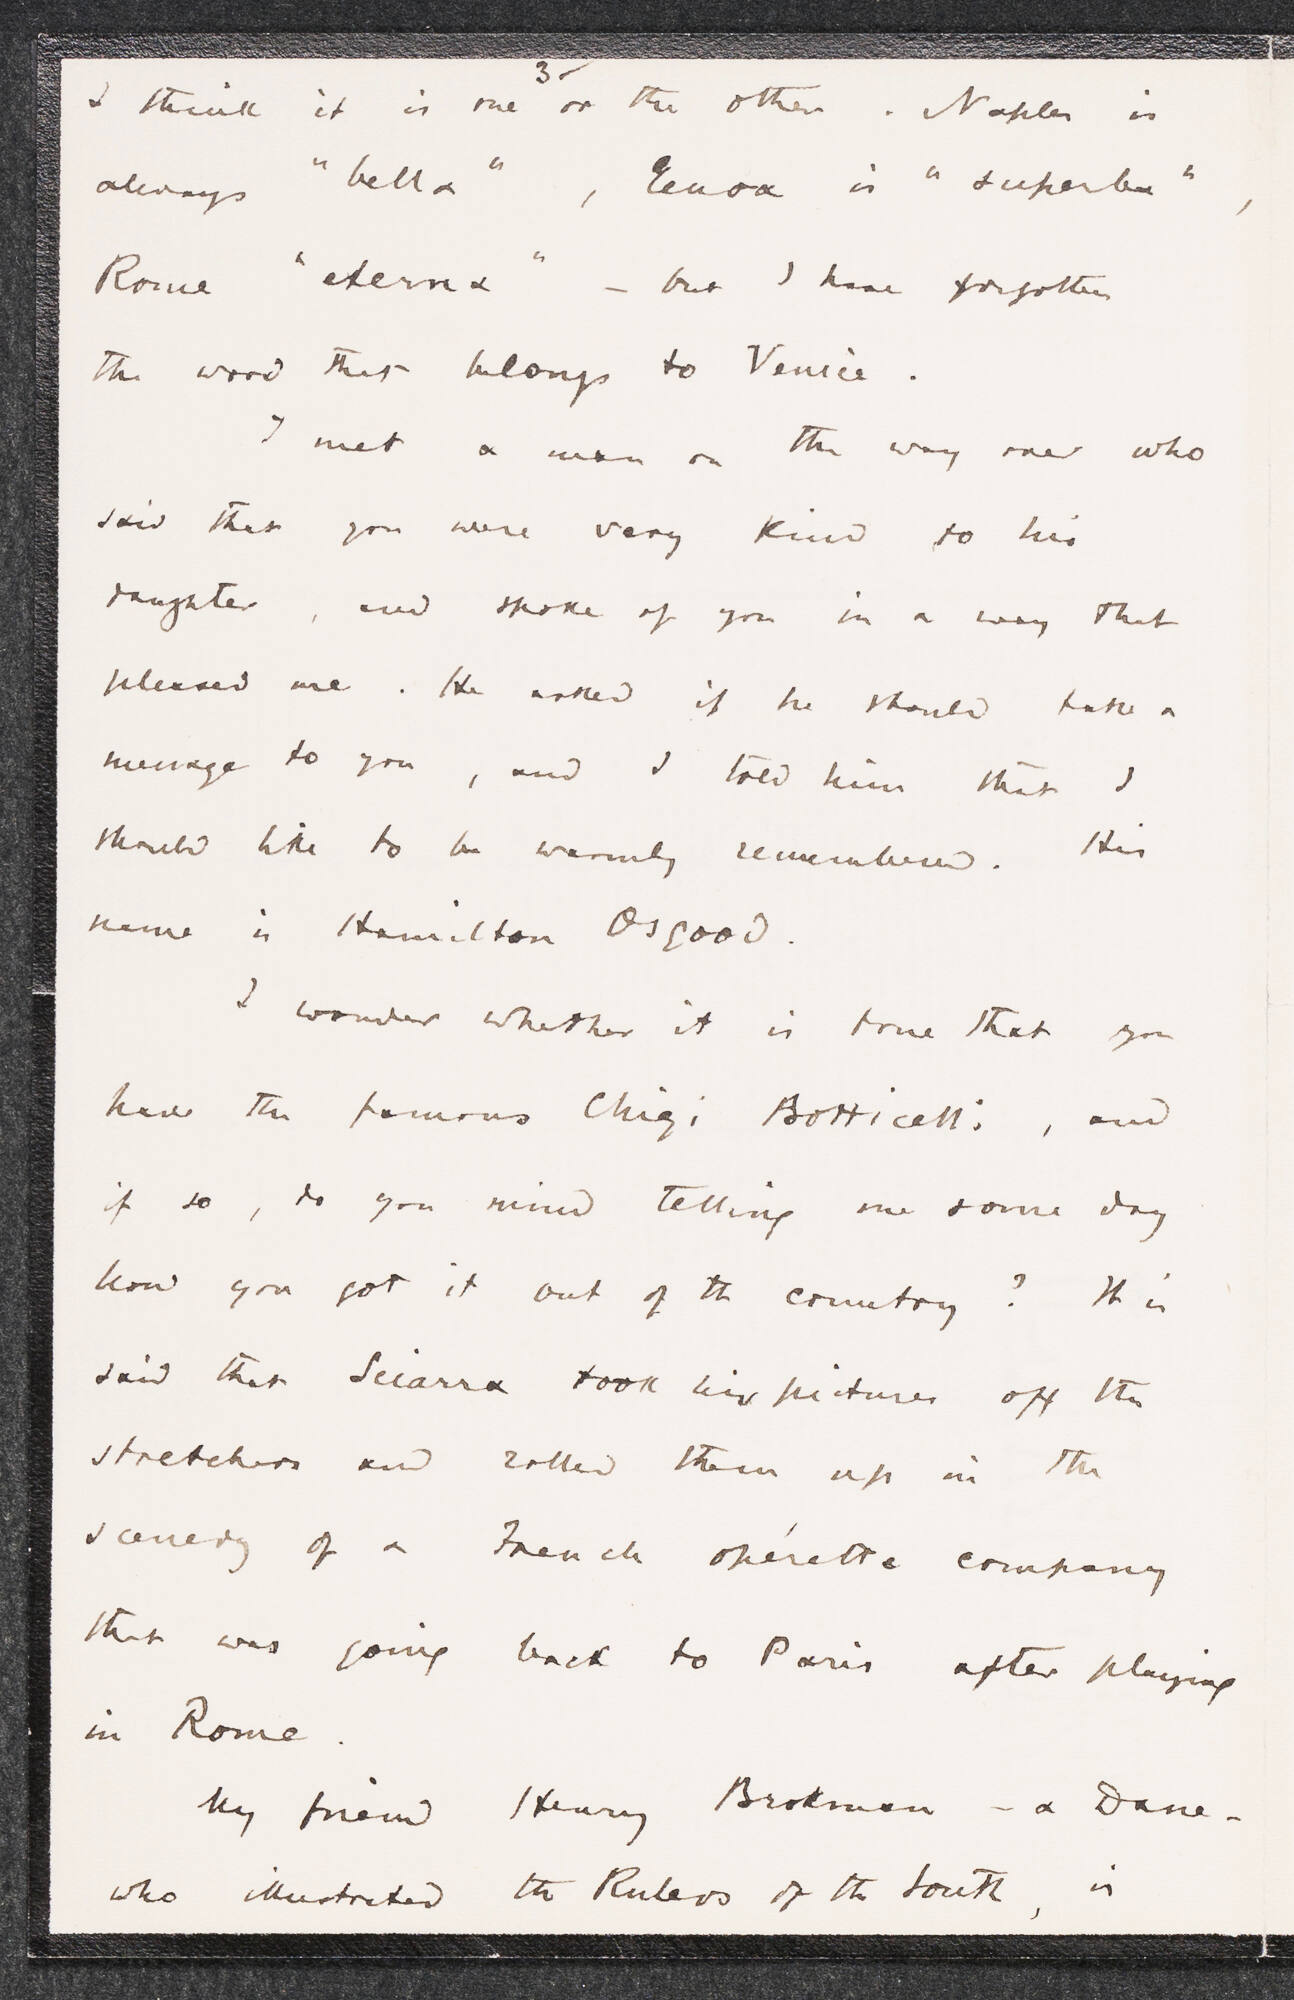 3
I think it is one or the other. Naples is
always "bella", Genoa is "superba",
Rome "eterna" – but I have forgotten
the word that belongs to Venice.
I met a man on the way over who
said that you were very kind to his
daughter, and spoke of you in a way that
pleased me. He asked if he should take a
message to you, and I told him that I
should like to be warmly remembered. His
name is Hamilton Osgood.
I wonder whether it is true that you
have the famous Chigi Botticelli, and
if so, do you mind telling me some day
how you got it out of the country? It is
said that Sciarra took his pictures off the
stretchers and rolled them up in the
scenery of a French opérette company
that was going back to Paris after playing
in Rome.
My friend Henry Brokman – a Dane –
who illustrated the Rulers of the South, is